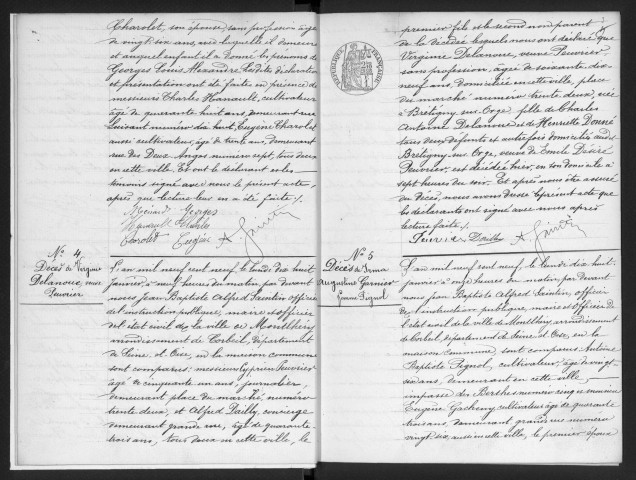 Charolet, son épouse, sans profession âgée
de vingt six ans, avec laquelle il demeure
et auquel enfant il a donné les prénoms de
Georges Louis Alexandre. Lesdites déclaration
et présentation ont été faite en présence de
messieurs Charles Hainault, cultivateur
âgé de quarante huit ans demeurant rue
Luisant numéro dix huit, Eugène Charolet
aussi cultivateur, âgé de trente ans, demeurant
rue des Deux Anges numéro sept, tous deux
en cette ville. Et ont le déclarant et les
témoins signé avec nous le présent acte,
après que lecture leur en a été faite ./.
Georges
Charolet Eugène
N° 4
Décès de Virginie
Delanoue, veuve
Peuvrier
L'an mil neuf cent neuf le lundi dix huit
janvier, à neuf heures du matin par devant
nous Jean Baptiste Alfred Saintin officier
de l'instruction publique, maire et officier
de l'état civil de la ville de Montlhéry
arrondissement de Corbeil, département
de Seine et Oise, en la maison commune
sont comparus: messieurs Cyprien Peuvrier
âgé de cinquante un ans, journalier,
demeurant place du marché, numéro
trente deux, et Alfred Pailly, concierge
demeurant grande rue, âgé de quarante
trois ans, tous deux en cette ville, le
premier fils et le second non parent
de la décédée, lesquels nous ont déclaré que
Virginie Delanoue, veuve Peuvrier
sans profession, âgée de soixante dix
neuf ans, domiciliée en cette ville, place
du marché numéro trente deux, née
à Brétigny sur Orge, fille de Charles
Antoine Delanoue et de Henriette Donné
tous deux défunts et autrefois domiciliés audit
Brétigny sur Orge, veuve de Emile Désiré
Peuvrier, est décédée hier, en son domicile à
sept heures du soir. Et après nous être assuré
du décès, nous avons dressé le présent acte que
les déclarants ont signé avec nous après
lecture faite ./.
Peuvrier Pailly A. Saintin
N° 5
Décès de Irma
Augustine Garnier
femme Pignol
L'an mil neuf cent neuf, le lundi dix huit
janvier à onze heures du matin, par devant
nous Jean Baptiste Alfred Saintin, officier
de l'instruction publique, maire et officier de
l'état civil de la ville de Montlhéry, arrondissement
de Corbeil, département de Seine et Oise, en la
maison commune, sont comparus Antoine
Baptiste Pignol, cultivateur, âgé de vingt
six ans, demeurant en cette ville
impasse des Berthes numéro cinq et monsieur
Eugène Gacheny cultivateur âgé de quarante
trois ans, demeurant grande rue numéro
vingt six, aussi en cette ville, le premier époux